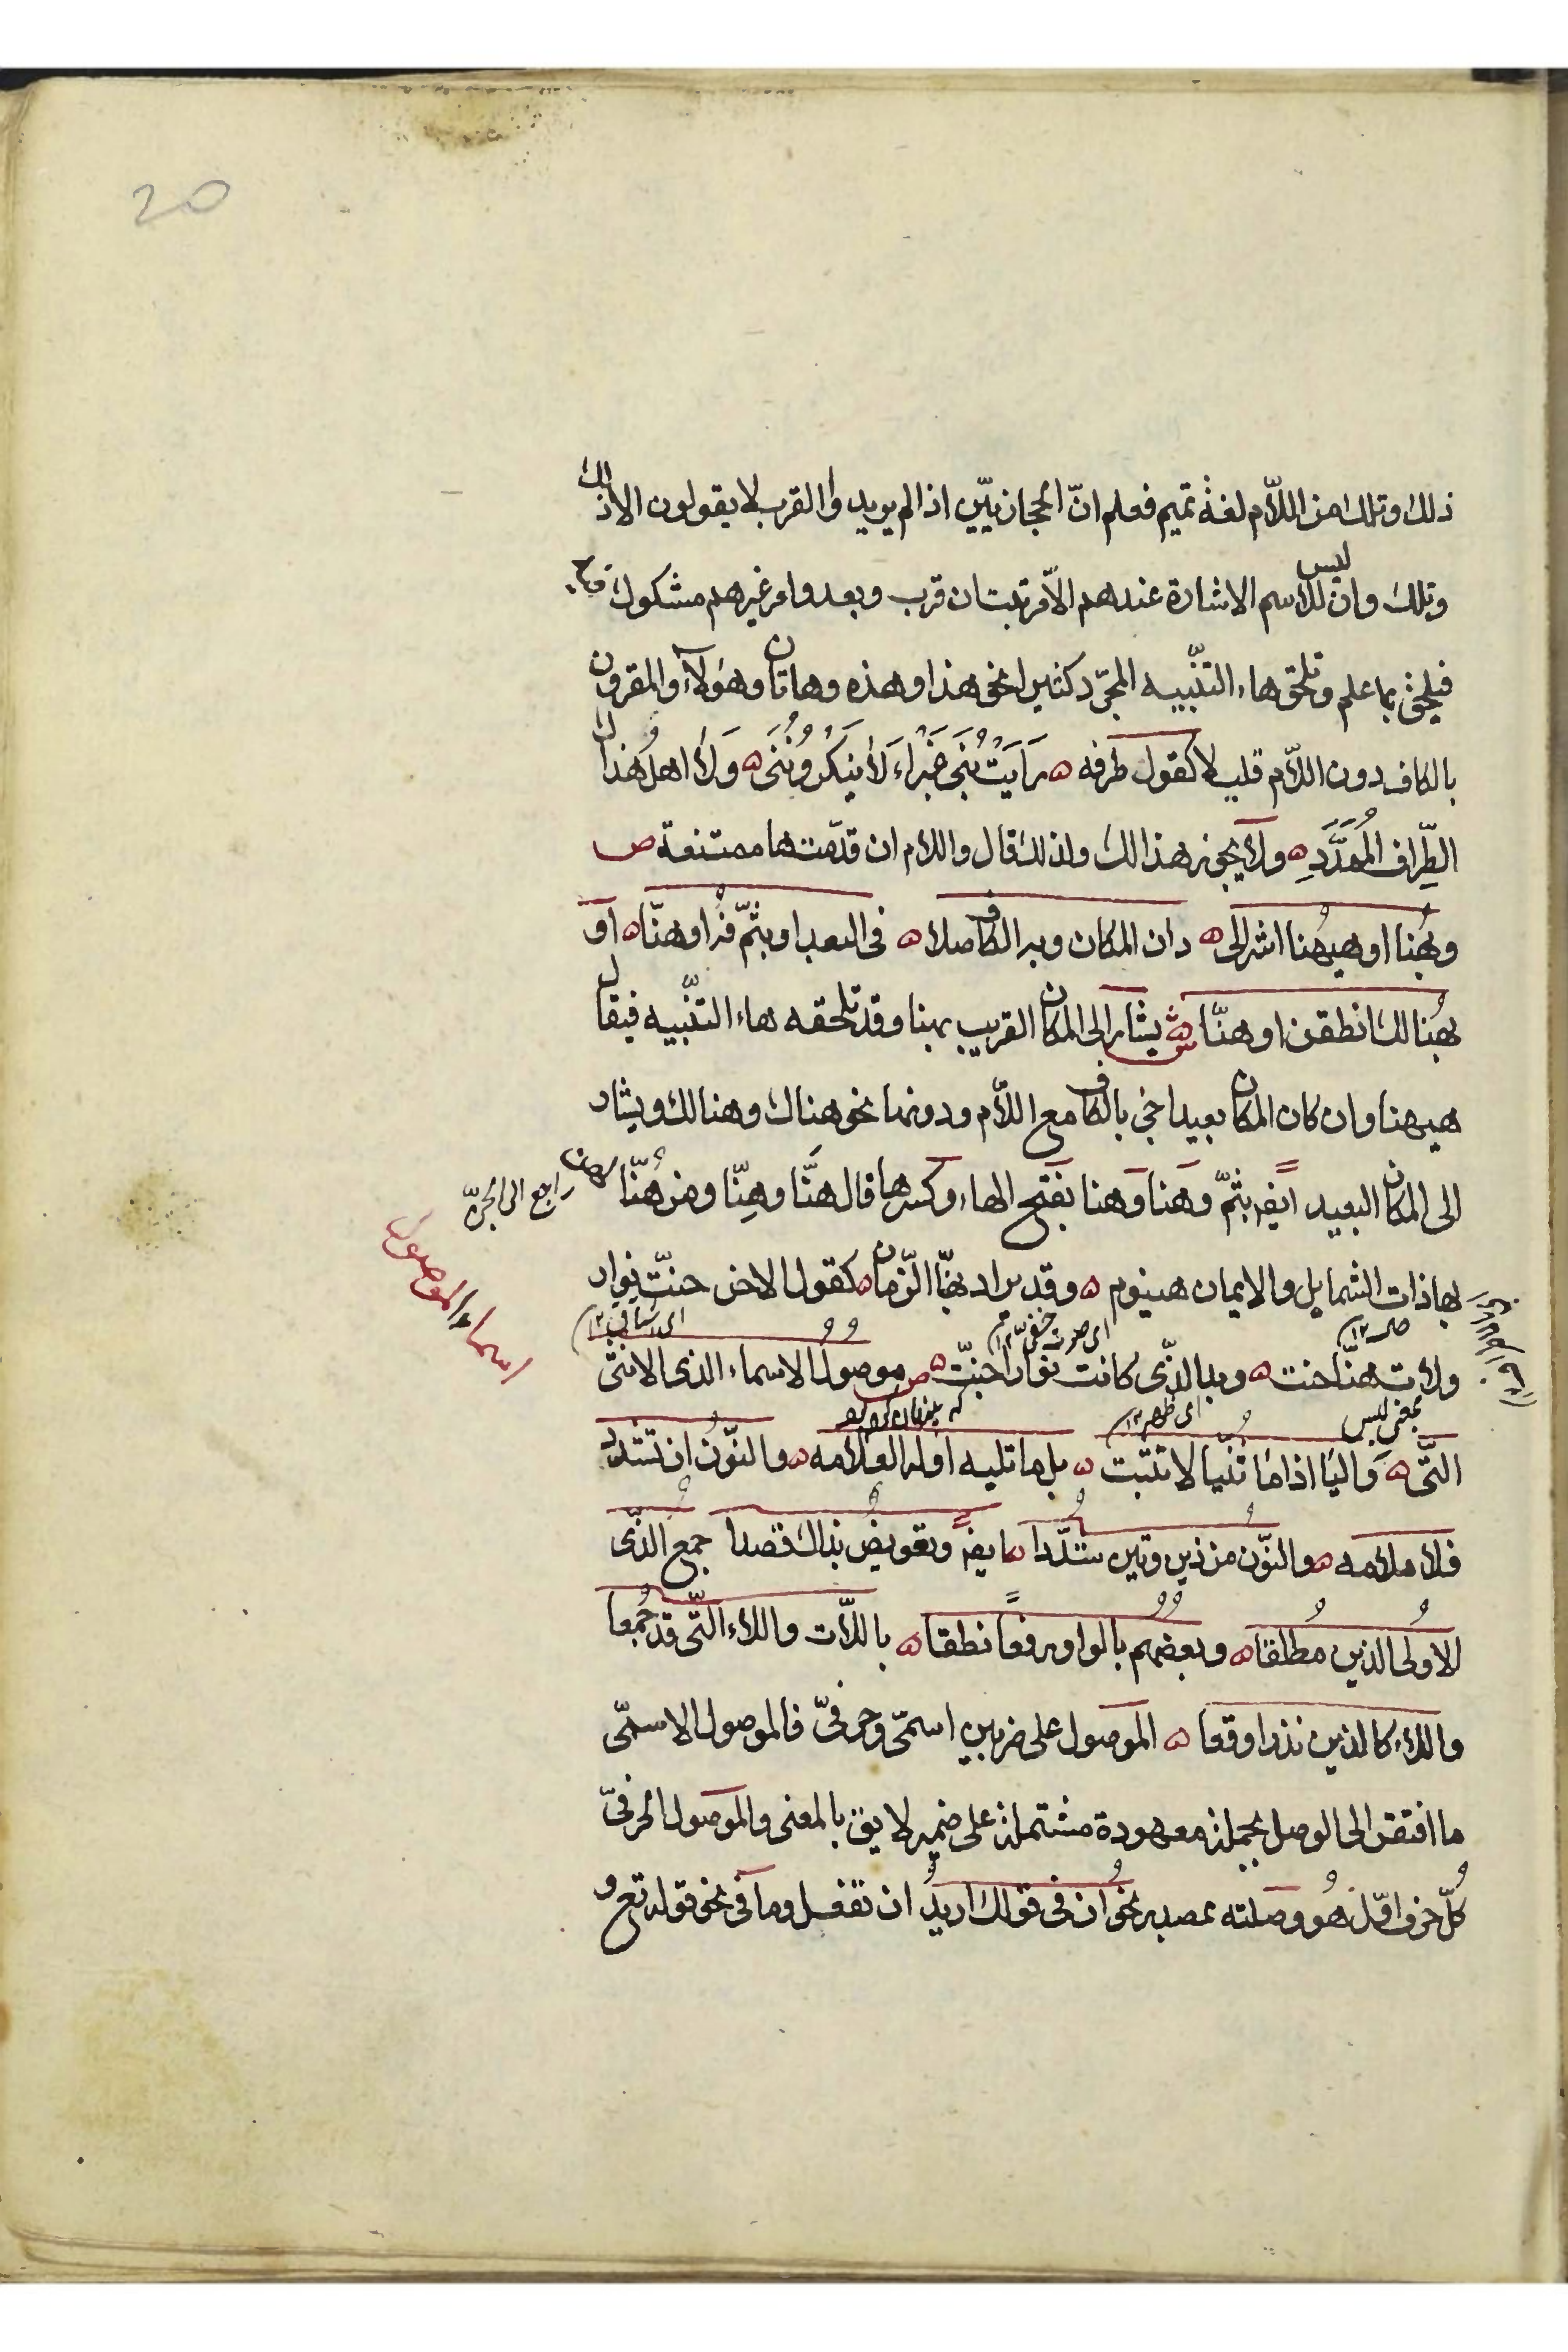 20
ذلك وتلك من اللّام لغة تميم فعلم انّ الحجازيّين اذا لم يريدوا القرب لا يقولون الا ذلك
وتلك وان ليس لاسم الاشارة عندهم الّا مرتبتان قرب وبعد وامر غيرهم مشكوك فيه
فيلحق بما علم وتلحق هاء التنّبيه المجرّد كثيرا نحو هذا وهذه وهاتان وهؤلاء والمقرون
بالكاف دون اللّام قليلا كقول طرفه ه رَاَيْتُ بَنِى غَبْراءَ لَا يُنكِرُونَنِى ه وَلَا اهلُ هُذاك
الطِّرافِ المُمَدَّدِ ه ولا يجوز هذالك ولذلك قال واللام ان قدّمت ها ممتنعة ص
وبهُنا او هيهُنا اشر الى ه دان المكان وبه الكاف صلا ه فى البعد او بثَمّ فُه او هنّا ه او
بهُنالك انطقن او هنّا ه ش يشار الى المكان القريب بهنا وقد تلحقه هاء التنّبيه فيقال
هيهنا وان كان المكان بعيدا جئ بالكاف مع اللّام ودونها نحو هناك وهنالك ويشار
الى المكان البعيد ايضا بثمّ وهَنا وهنا بفتح الهاء وكسرها قال هَنَّا وهِنّا ومن هُنّا لهن
راجع الى الجنّ
بها ذات الشمايل والايمان هينوم ه وقد يراد بهنّا الزّمان ه كقول الاخر حنتّ نوار
ولات هنّا حنت ه وبدا الذّى كانت نوار اجنّت ه ص موصول الاسماء الذى الانثى
اى صوت خفىّ ١٢
بمعنى ليس
اى ظهر ١٢
اسماء الموصول
التّى ه وَاليا اذا ما ثُنّيا لا تثبت ه بل ما تليه اوله العلامه ه والنّونُ ان تشدد
فلا ملامه ه والنّون من ذين وتين شدّدا ه ايضا وتعويضٌ بذاك قصدا جمع الذّى
الاُولى الذين مُطلقا ه وبعضهم بالواو رفعاً نطقا ه باللّات واللاء التّى قد جُمعا
واللاء كالذين نذرا وقعا ه الموصول على ضربين اسمىّ وحرفىّ فالموصول الاسمىّ
ما افتقر الى الوصل بجملة معهودة مشتملة على ضمير لايق بالمعنى والموصول الحرفىّ
كُلّ حرف اوّل هُو وصلته بمصدر نحو اُن فى قولك اريدُ ان تفعل وما فى نحو قوله تع و